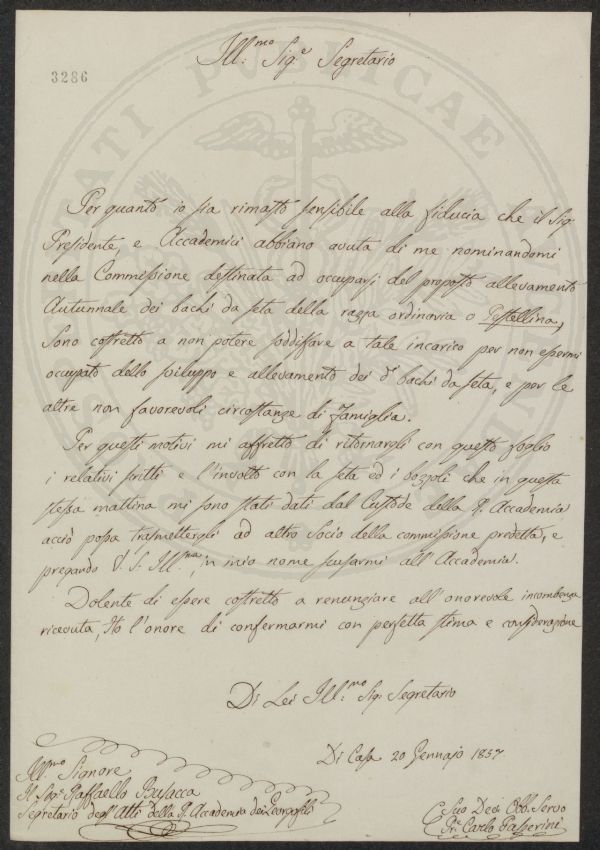 Ill:mo Sig:e Segretario
3286
Per quanto io sia rimasto sensibile alla fiducia che il Sig.
Presidente, e Accademici abbiano avuta di me nominandomi
nella Commissione destinata ad occuparsi del proposto allevamento
Autunnale dei bachi da seta della razza ordinaria o Pestellina,
Sono costretto a non potere soddisfare a tale incarico per non essermi
occupato dello sviluppo e allevamento dei di bachi da seta, e per le
altre non favorevoli circostanze di Famiglia.
Per questi motivi mi affretto di ritornargli con questo foglio
i relativi scritti e l'involto con la seta ed i bozzoli che in questa
stessa mattina mi sono stati dati dal Custode della R. Accademia
acciò possa trasmettergli ad altro Socio della commissione predetta, e
pregando V. S. Ill:ma, in mio nome scusarmi all'Accademia.
Dolente di essere costretto a renunziare all'onorevole incombenza
ricevuta, Ho l'onore di confermarmi con perfetta stima e considerazione
Di Lei Ill:mo Sig: Segretario
Di Casa 20 Gennajo 1857
Ill:mo Signore
Il Sig:e Raffaello Busacca
Segretario degl'Atti della R. Accademia dei Georgofili
Suo Dev: Obb. Servo
Carlo Passerini